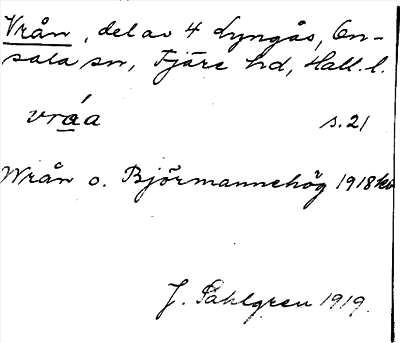 Vrån, del av 4 Lyngås, On-
sala sn, Fjäre hd, Hall. l.
vrá̲a s. 21
Wrån o. Björmannehög 1918
J. Sahlgren 1919.